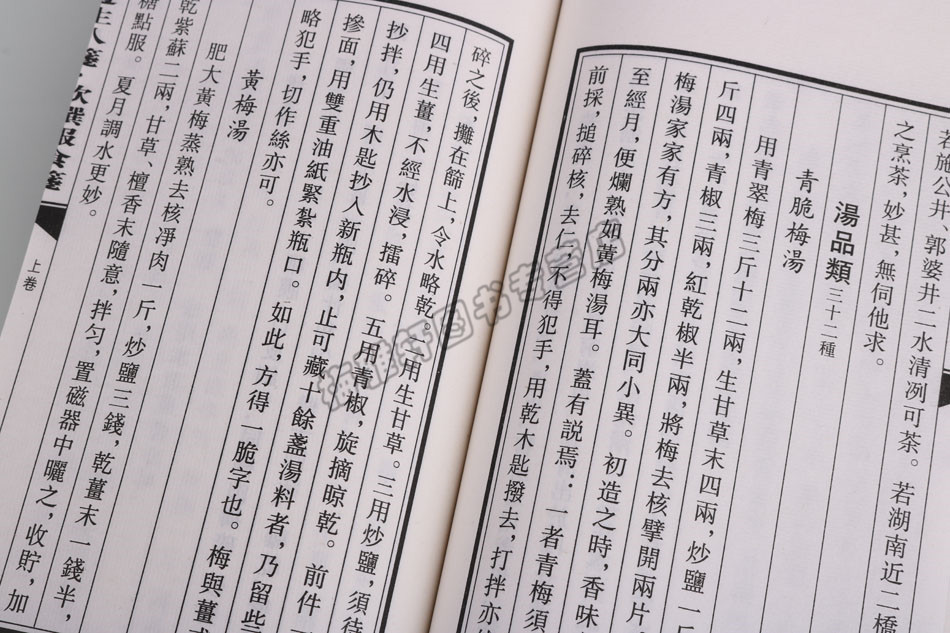 若施公井、郭婆井二水清冽可茶。若湖南近二橋
之烹茶,妙甚,無伺他求。
湯品類 三十二種
青脆梅湯
用青翠梅三斤十二兩,生甘草末四兩,炒鹽一
斤四兩,青椒三兩,紅乾椒半兩,將梅去核擘開兩片
梅湯家家有方,其分兩亦大同小異。初造之時,香味
至經月,便爛熟如黃梅湯耳。蓋有説焉:一者青梅須
前採,搥碎核,去仁,不得犯手,用乾木匙撥去,打拌亦
碎之後,攤在篩上,令水略乾。二用生甘草。三用炒鹽,須待
四用生薑,不經水浸,擂碎。五用青椒,旋摘晾乾。前件
抄拌,仍用木匙抄入新瓶内,止可藏十餘盞湯料者,乃留些
摻面,用雙重油紙緊紮瓶口。如此,方得一脆字也。梅與薑或
略犯手,切作絲亦可。
黃梅湯
肥大黃梅蒸熟去核凈肉一斤,炒鹽三錢,乾薑末一錢半,
乾紫蘇二兩,甘草、檀香末隨意,拌勻,置磁器中曬之,收貯,加
糖點服。夏月調水更妙。
生八箋·飲饌服食箋
上卷
轩图书专营店